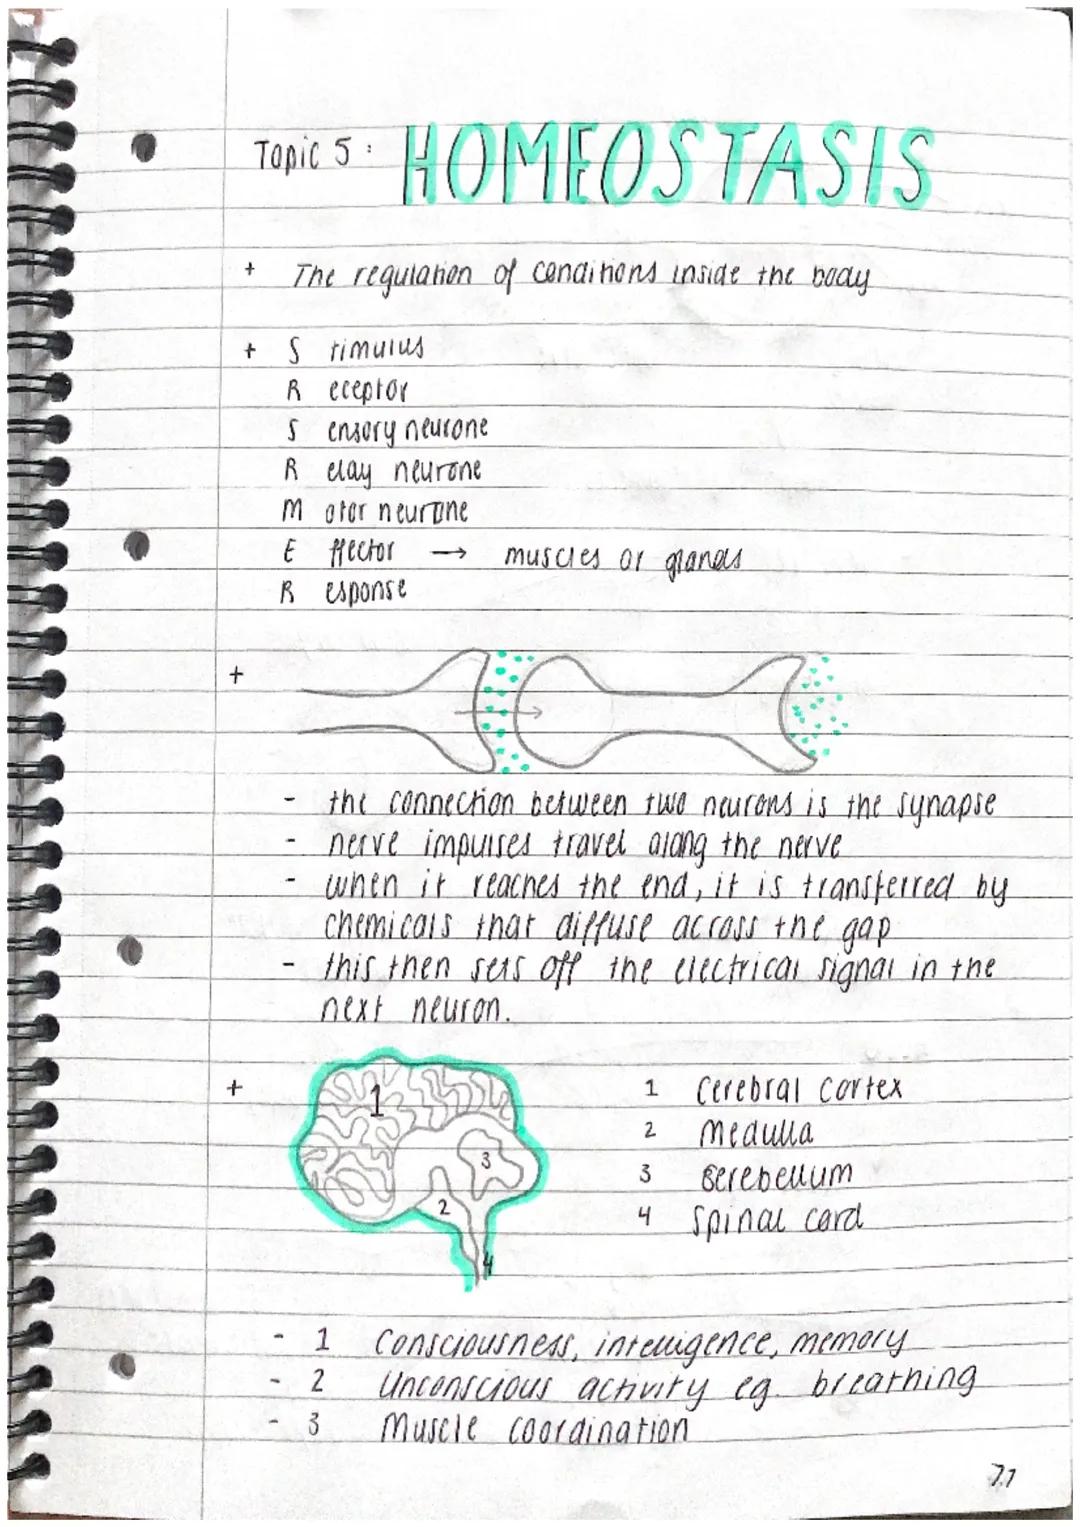 Topic 5: HOMEOSTASIS
+ The regulation of conditions inside the body
+ S timulus
R eceptor
S ensory neurone
R elay neurone
M otor neurone
E ffector → muscles or glands
R esponse
+
- the connection between two neurons is the synapse
- nerve impulses travel along the nerve
- when it reaches the end, it is transferred by
chemicals that diffuse across the gap
- this then sets off the electrical signal in the
next neuron.
+
1
3
2
4
1 Cerebral cortex
2 Medulla
3 Cerebellum
4 Spinal cord
- 1 Consciousness, intelligence, memory
- 2 Unconscious activity eg. breathing
- 3 Muscle coordination